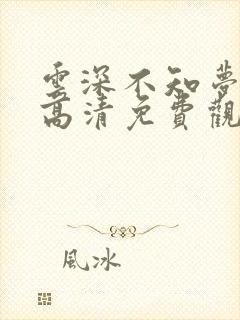 雲深不知夢
高清免費觀
風冰